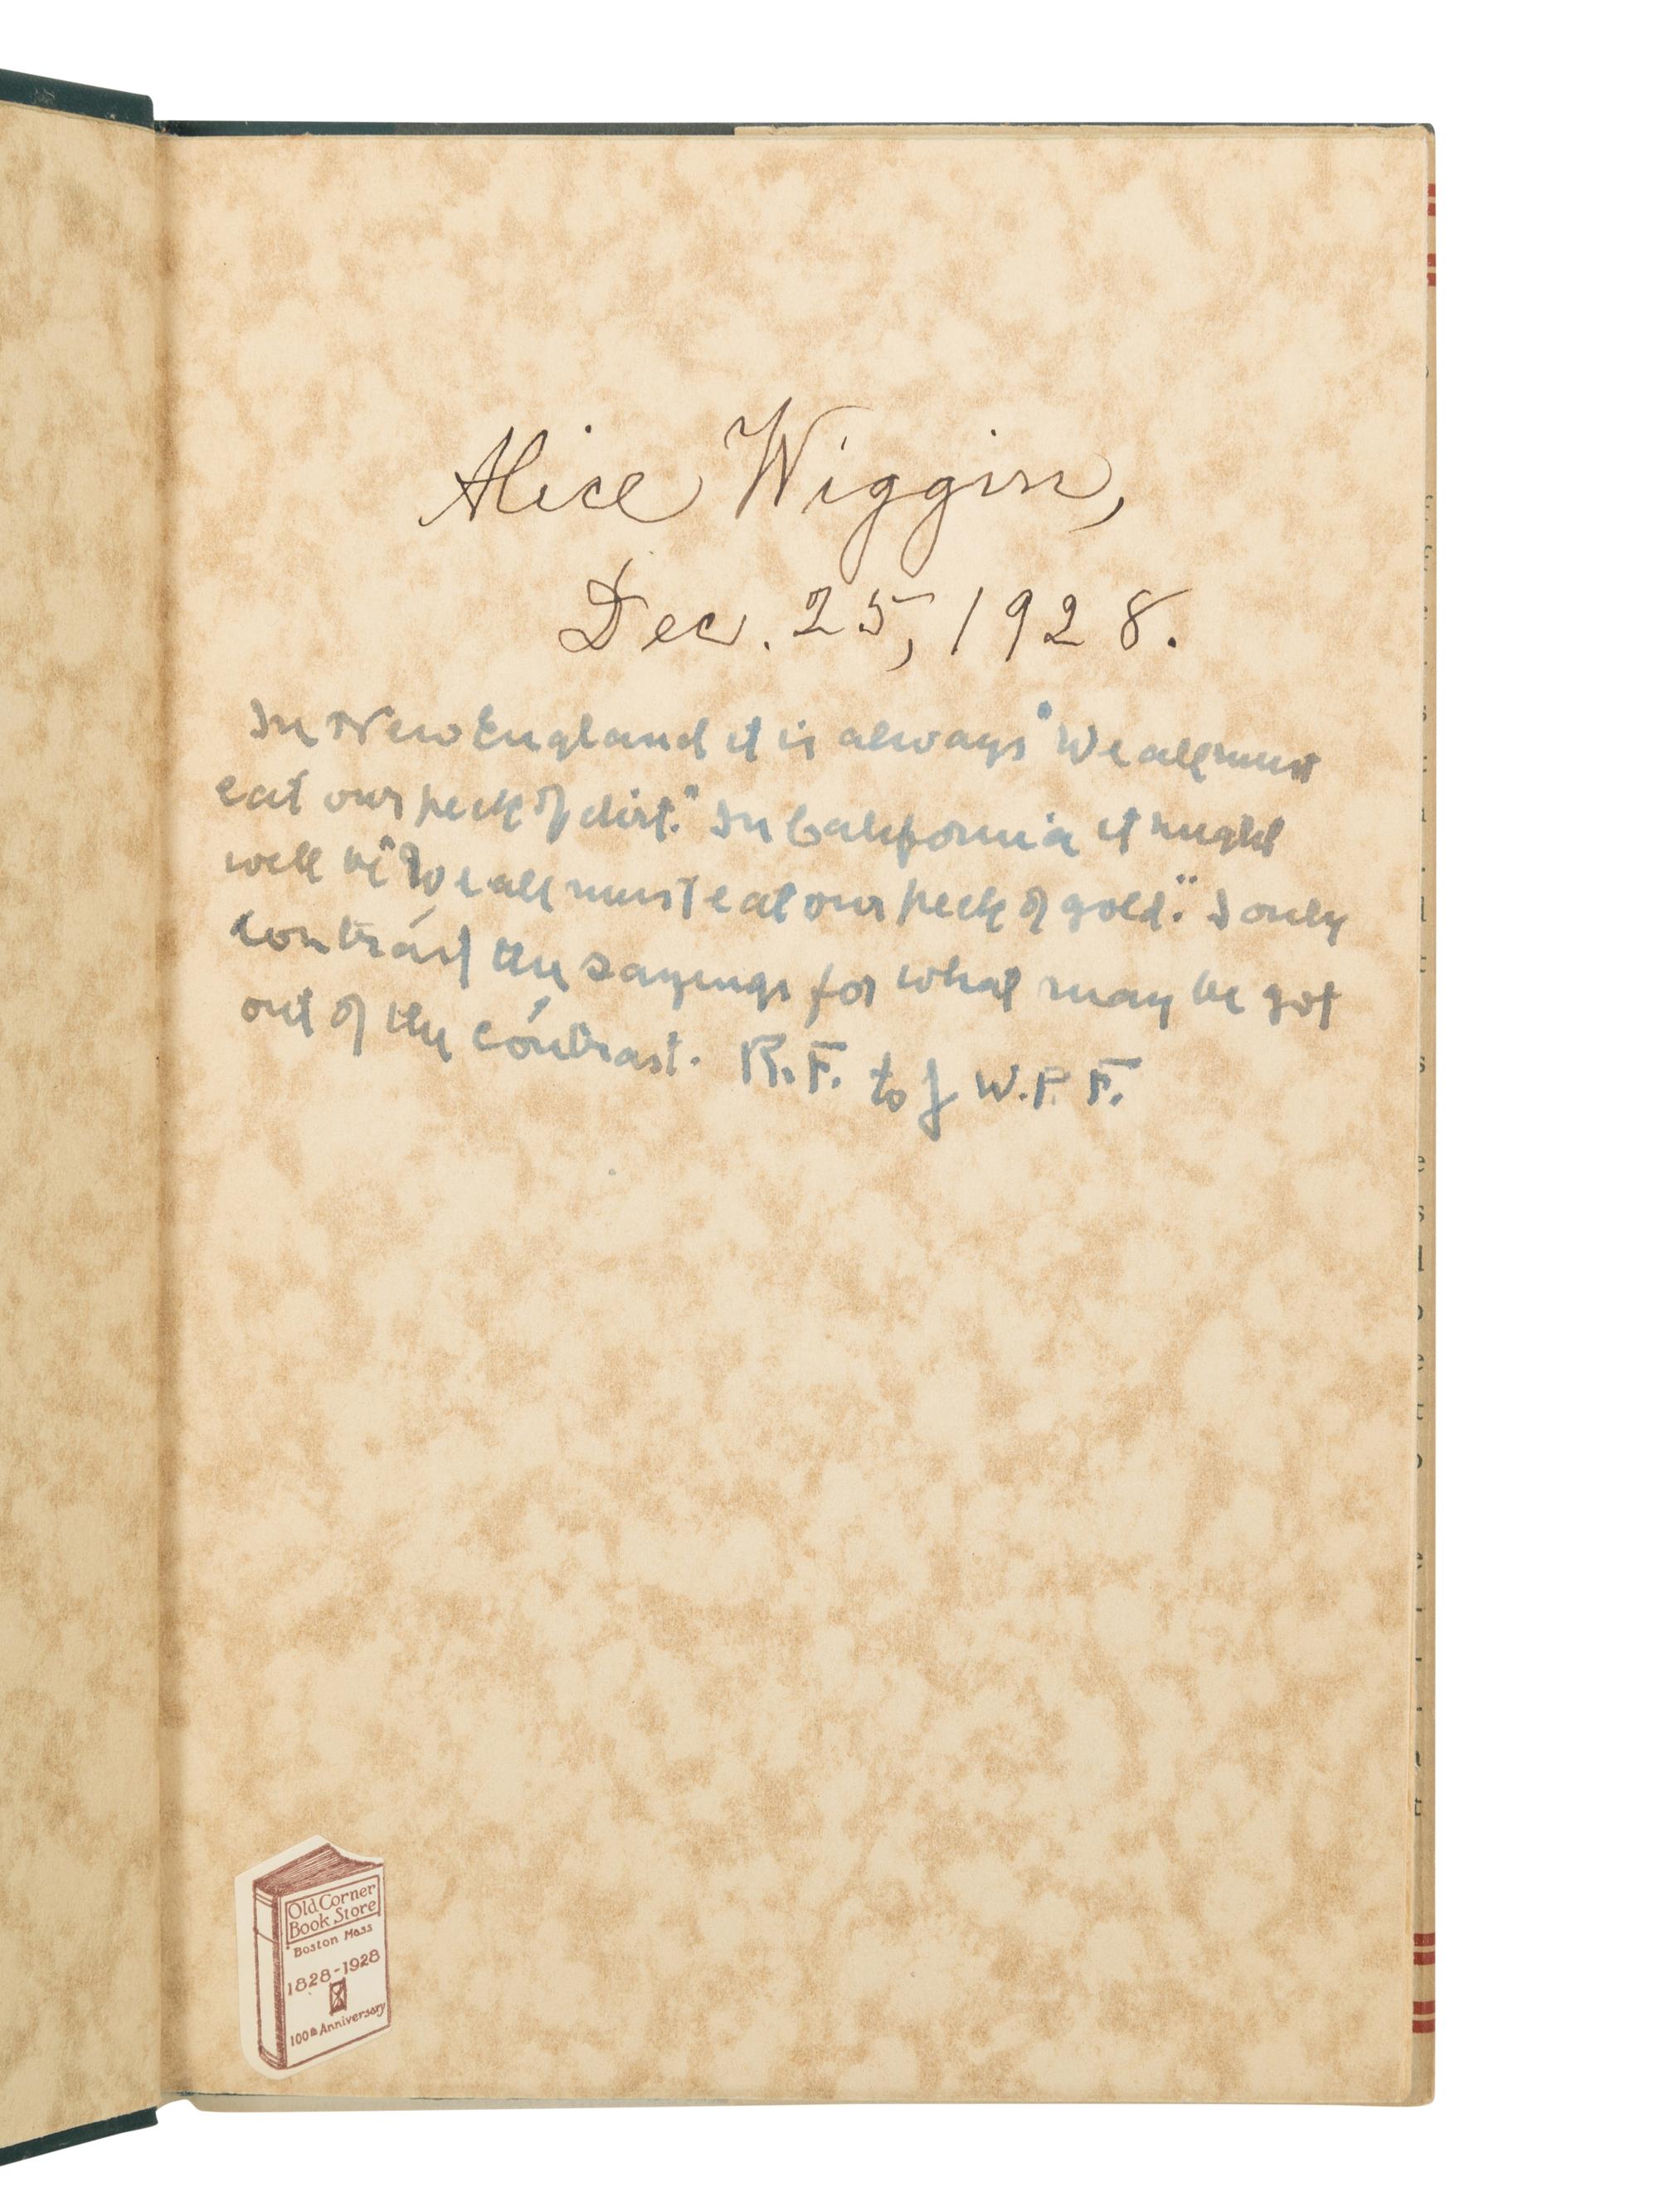 Alice Wiggin,
Dec. 25, 1928.
In New England it is always "We all must
eat our peck of dirt." In California it might
well be "We all must eat our peck of gold." I only
contrást the sayings for what may be got
out of the cóntrast. R.F. to J W.P. F.
Old Corner
Book Store
Boston Mass
1828-1928
100th Anniversary